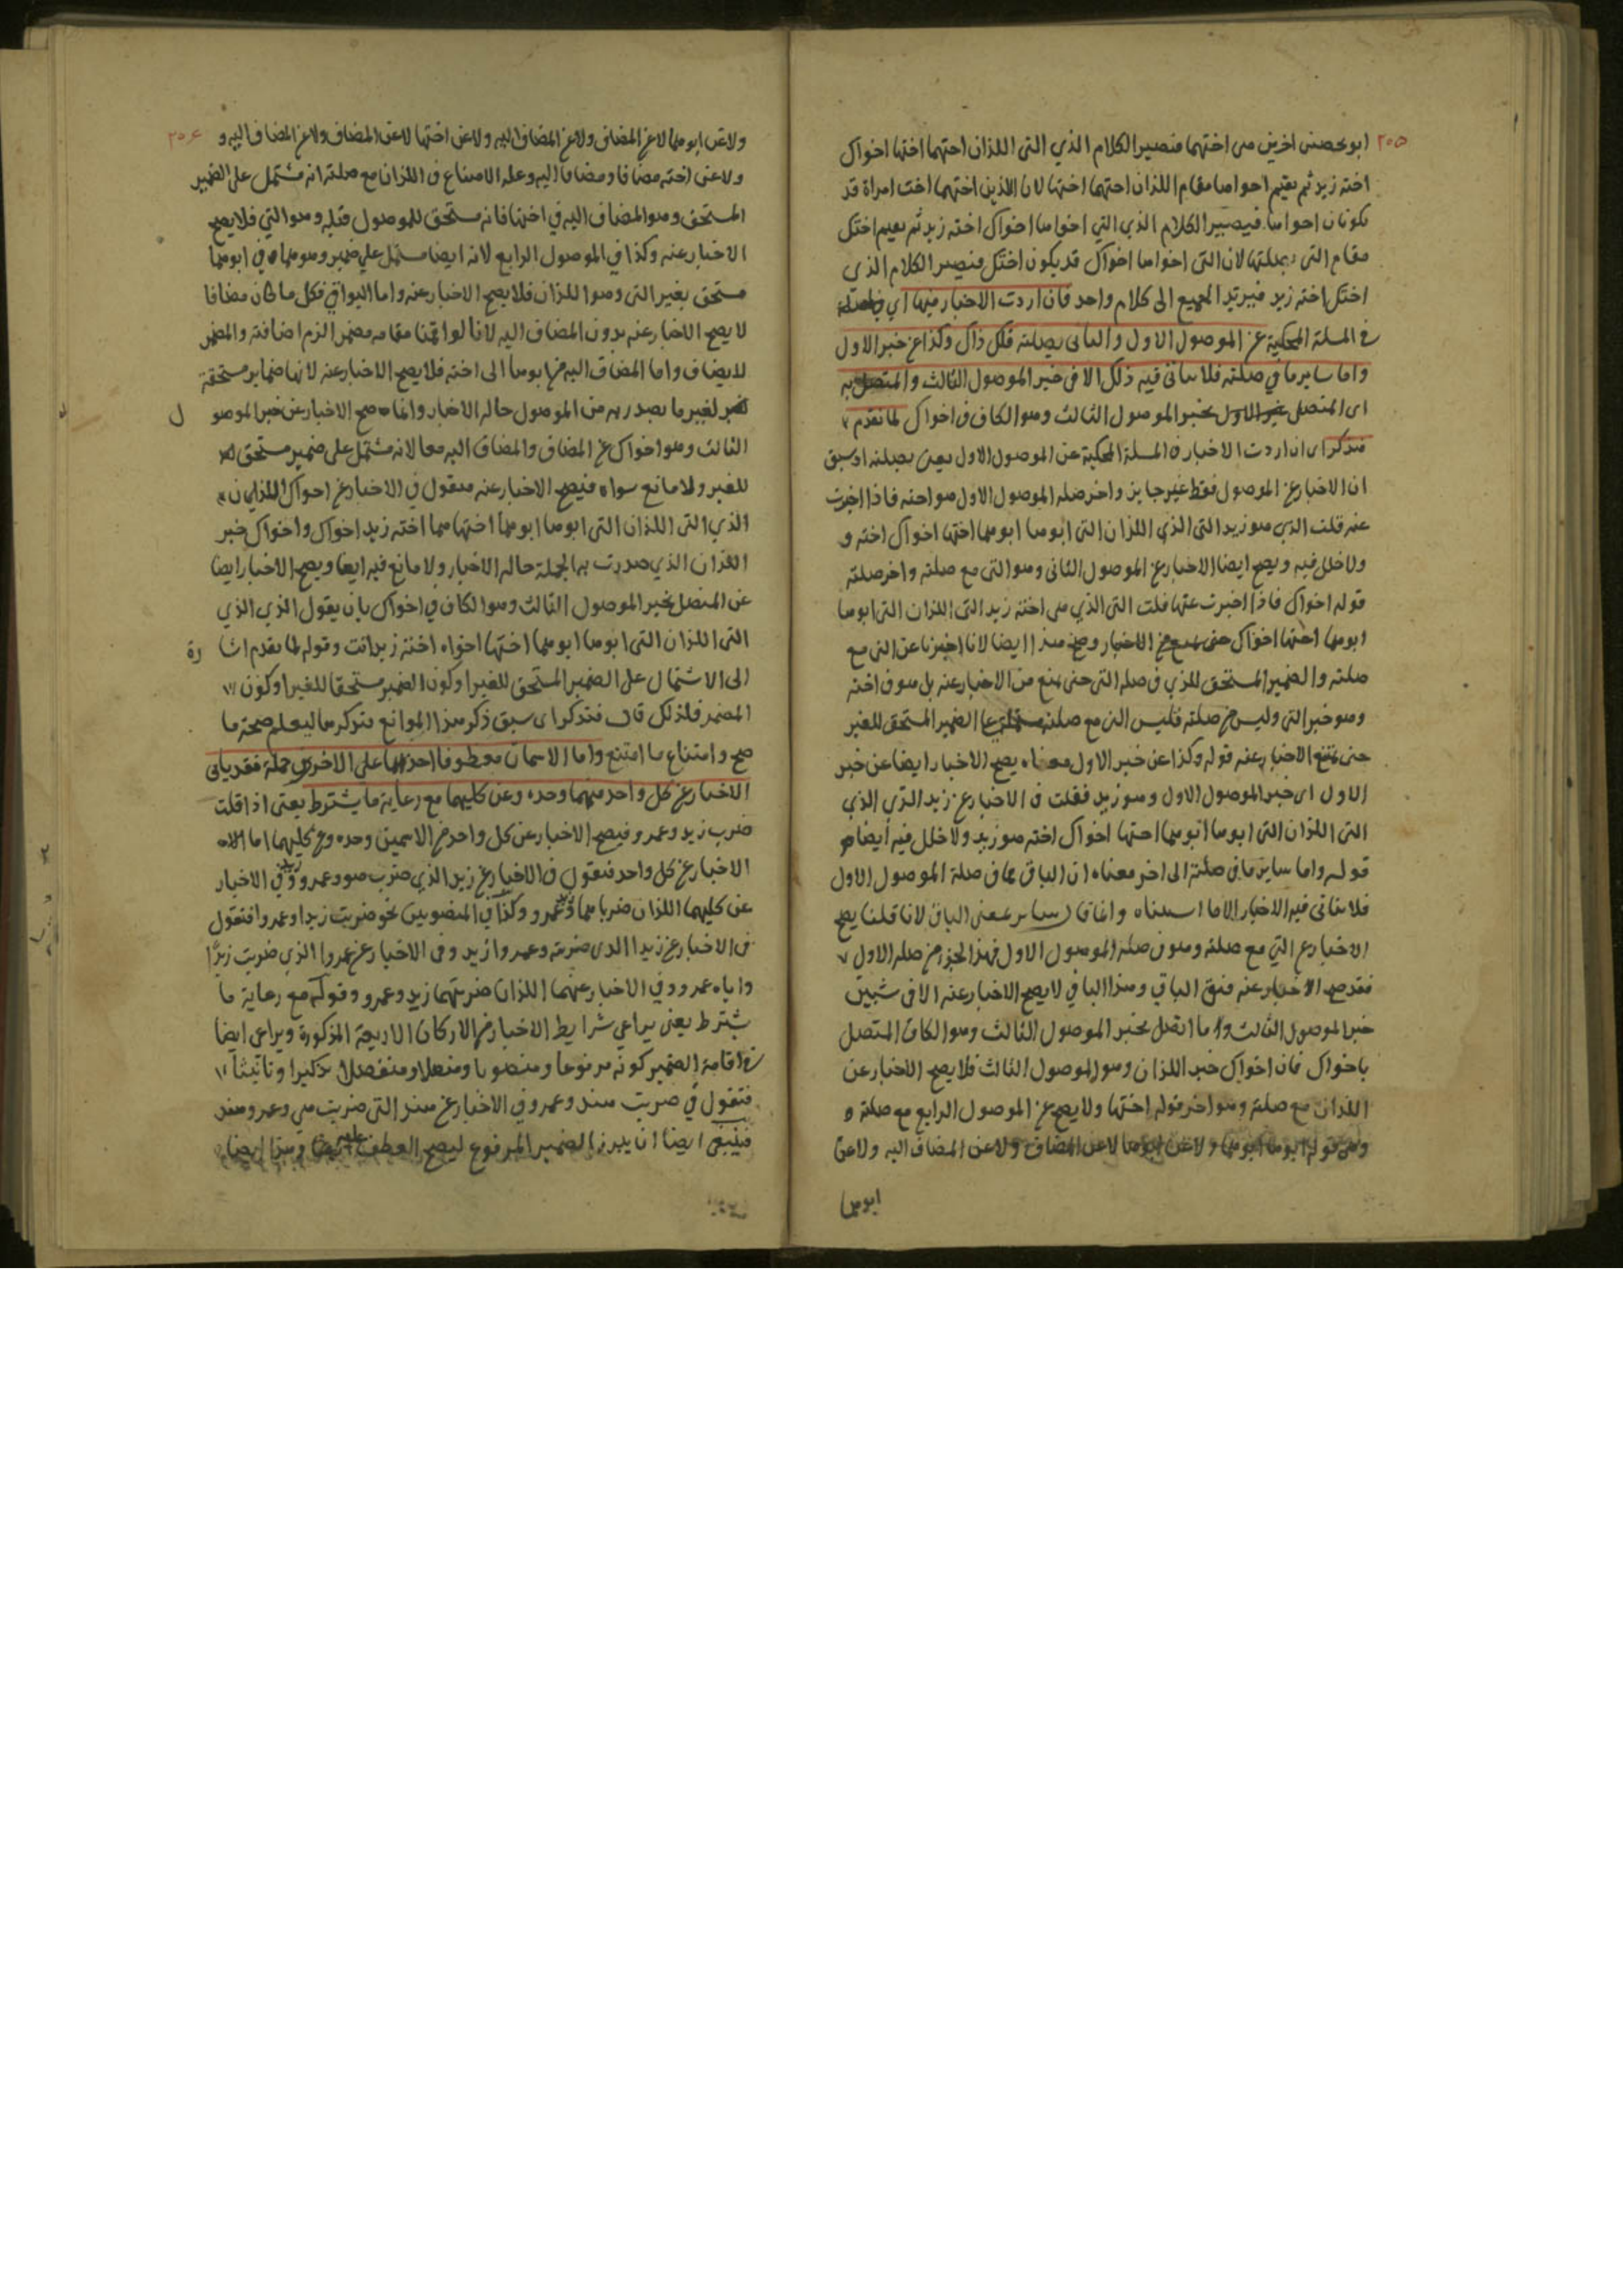 ٢٥٥
ابو بحصنى اخرين هى اختهما فيصير الكلام الذي التى اللذان اختهما اختها اخواك
اخته زيد ثم يقيم اخواها مقام اللذان اختهما اختها لان اللذين اختهما اخت امراة قد
يكونان اخواها فيصير الكلام الذي التي اخواها اخواك اخته زيد ثم يقيم اختك
مقام التى بصلتها لان التى اخواها اخواك قد يكون اختك فيصير الكلام الذى
اختك اخته زيد فيرتد الجميع الى كلام واحد فان اردت الاخبار فيها اي
في المسلة المحكية عن الموصول الاول والثانى بصلته فلك ذاك وكذا عن خبر الاول
واما ساير ما في صلته فلا يتاتى فيه ذلك الا فى خبر الموصول الثالث والمتصل به
اى المتصل بخبر الموصول الثالث وهو الكاف فى اخواك لما تقدم
فتذكر اى ان اردت الاخبار فى المسلة المحكية عن الموصول الاول يعنى بصلته اذ سبق
ان الاخبار عن الموصول فقط غير جايز واخر صلة الموصول الاول هو اخته فاذا اخبرت
عنه قلت الذي هو زيد التى الذي اللذان التى ابوها ابوهما اختها اخواك اخته و
ولا خلل فيه ويصح ايضا الاخبار عن الموصول الثانى وهو التى مع صلته واخر صلته
قوله اخواك فاذا اخبرت عنها قلت التى الذي هى اخته زيد التى اللذان التى ابوها
ابوهما اختها اخواك حتى يمنع من الاخبار وصح هذا ايضا لانا اخبرنا عن التى مع
صلته والضمير المستحق للذي فى صلة التى حتى يمنع من الاخبار عنه بل هو فى اخته
وهو خبر التى وليس من صلته فليس التى مع صلته مشتملة على الضمير المستحق للغير
حتى يمتنع الاخبار عنه قوله وكذا عن خبر الاول معناه يصح الاخبار ايضا عن خبر
الاول اى خبر الموصول الاول وهو زيد فقلت فى الاخبار عن زيد الذي الذي
التى اللذان التى ابوها ابوهما اختها اخواك اخته هو زيد ولا خلل فيه ايضا
قوله واما ساير ما فى صلته الى اخر معناه ان الباقى مما فى صلة الموصول الاول
فلا يتاتى فيه الاخبار الا ما استثناه وانما قال ساير بمعنى الباقى لانا قلنا يصح
الاخبار عن التي مع صلته وهو فى صلة الموصول الاول فهذا الجزء من صلة الاول
فقد صح الاخبار عنه فبقى الباقى وهذا الباقي لا يصح الاخبار عنه الا فى شيئين
خبر الموصول الثالث وما اتصل بخبر الموصول الثالث وهو الكاف المتصل
باخواك فان اخواك خبر اللذان وهو الموصول الثالث فلا يصح الاخبار عن
اللذان مع صلته وهو اخر قوله اختها ولا يصح عن الموصول الرابع مع صلته
وهى قوله ابوها ابوهما ولا عن ابوها لا عن المضاف ولا عن المضاف اليه ولا عن
ابوهما
٢٥٦
ولا عن ابوهما لا عن المضاف ولا عن المضاف اليه ولا عن اختها لا عن المضاف ولا عن المضاف اليه و
ولا عن اخته مضافا ومضافا اليه وعلة الامتناع فى اللذان مع صلته انه مشتمل على الضمير
المستحق وهو المضاف اليه في اختها فانه مستحق للموصول قبله وهو التي فلا يصح
الاخبار عنه وكذا في الموصول الرابع لانه ايضا مشتمل على ضمير وهو هما فى ابوهما
مستحق بغير التى وهو اللذان فلا يصح الاخبار عنه واما البواقي فكل ما كان مضافا
لا يصح الاخبار عنه بدون المضاف اليه لانا لو اقمنا مقامه مضمر الزم اضافته والمضمر
لا يضاف واما المضاف اليه من ابوها الى اخته فلا يصح الاخبار عنه لانها ضماير مستحقة
لغير ما يصدر به من الموصول حالة الاخبار وانما صح الاخبار عن خبر الموصو ل
الثالث وهو اخواك عن المضاف والمضاف اليه معا لانه مشتمل على ضمير مستحق
للغير ولا مانع سواه فيصح الاخبار عنه فنقول في الاخبار عن اخواك اللذان
الذي التى اللذان التى ابوها ابوهما اختها هما اخته زيد اخواك واخواك خبر
اللذان الذي صدرت به الجملة حالة الاخبار ولا مانع فيه ايضا ويصح الاخبار ايضا
عن المتصل بخبر الموصول الثالث وهو الكاف في اخواك بان يقول الذي الذي
التى اللذان التى ابوها ابوهما اختها اخواه اخته زيد انت وقوله لما تقدم اشا رة
الى الاشتمال على الضمير المستحق للغير او كون الضمير مستحقا للغير او كون
المضمر فلذلك قال فتذكر اى سبق ذكر هذا الموانع فتذكرها ليعلم صحة ما
صح وامتناع ما امتنع واما الاسمان معطوفا احدهما على الاخر فى جملة فقد ياتى
الاخبار عن كل واحد منهما وحده وعن كليهما مع رعاية ما يشترط يعنى اذا قلت
ضرب زيد وعمرو فيصح الاخبار عن كل واحد من الاسمين وحده وعن كليهما اما
الاخبار عن كل واحد فنقول فى الاخبار عن زيد الذي ضرب هو وعمرو زيد وفي الاخبار
عن كليهما اللذان ضربا هما زيد وعمرو وكذا في المنصوبين نحو ضربت زيدا وعمروا فتقول
فى الاخبار عن زيدا الذى ضربته وعمروا زيد وفى الاخبار عن عمروا الذي ضربت زيدا
واياه عمرو وفي الاخبار عنهما اللذان ضربتهما زيد وعمرو وقوله مع رعاية ما
يشترط يعنى يراعي شرايط الاخبار من الاركان الاربعة المذكورة ويراعى ايضا
في اقامة الضمير كونه مرفوعا ومنصوبا ومتصلا ومنفصلا تذكيرا وتانيثا
فتقول في ضربت هند وعمرو في الاخبار عن هند التى ضربت هي وعمرو هند
فينبغى ايضا ان يبرز الضمير المرفوع ليصح العطف عليه وهذا ايضا